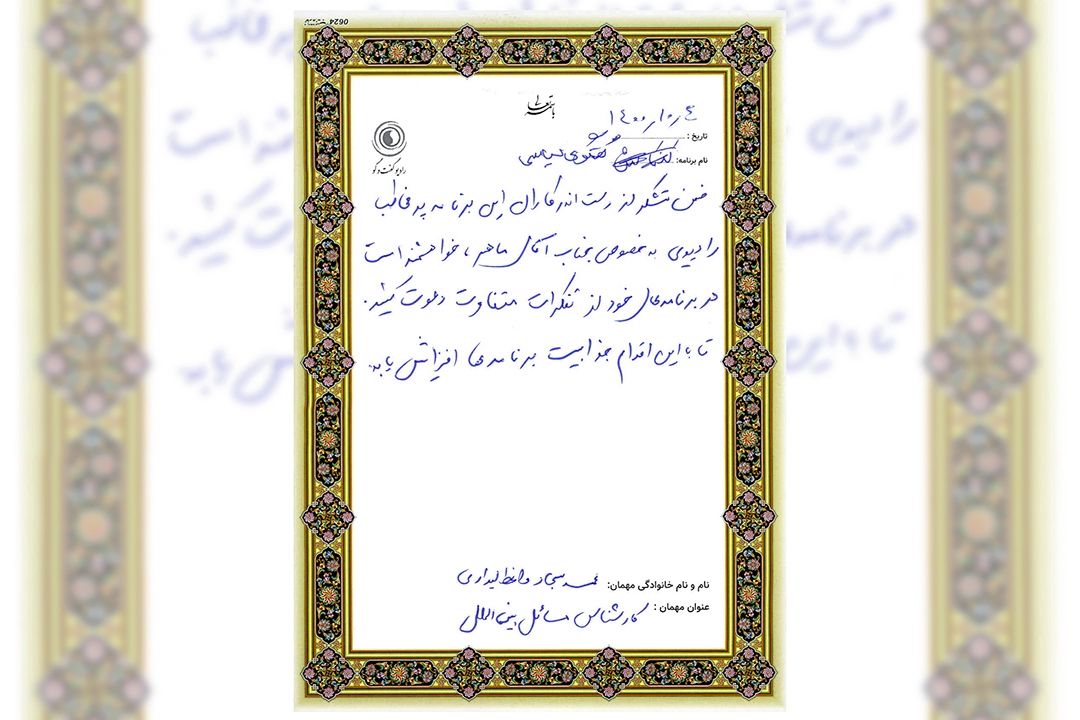 باسمه تعالی
رادیو گفت و گو
تاریخ : ۱۴۰۰/۱۰/۴
نام برنامه: گفتگوی سیاسی
ضمن تشکر از دست اندرکاران این برنامه پر مخاطب
رادیویی به خصوص جناب آقای ماهر، خواهشمند است
در برنامه‌های خود از تفکرات متفاوت دعوت کنید.
تا با این اقدام جذابیت برنامه‌ها افزایش یابد.
نام و نام خانوادگی مهمان: سجاد
عنوان مهمان : کارشناس مسائل بین الملل